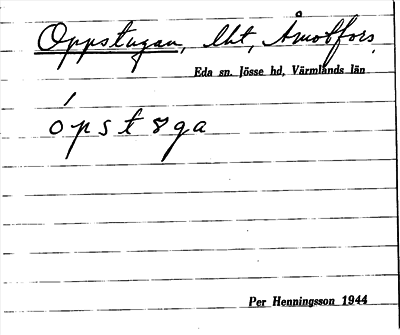 Oppstugan, lht, Åmotfors
Eda sn. Jösse hd, Värmlands län
ópstȣga
Per Henningsson 1944